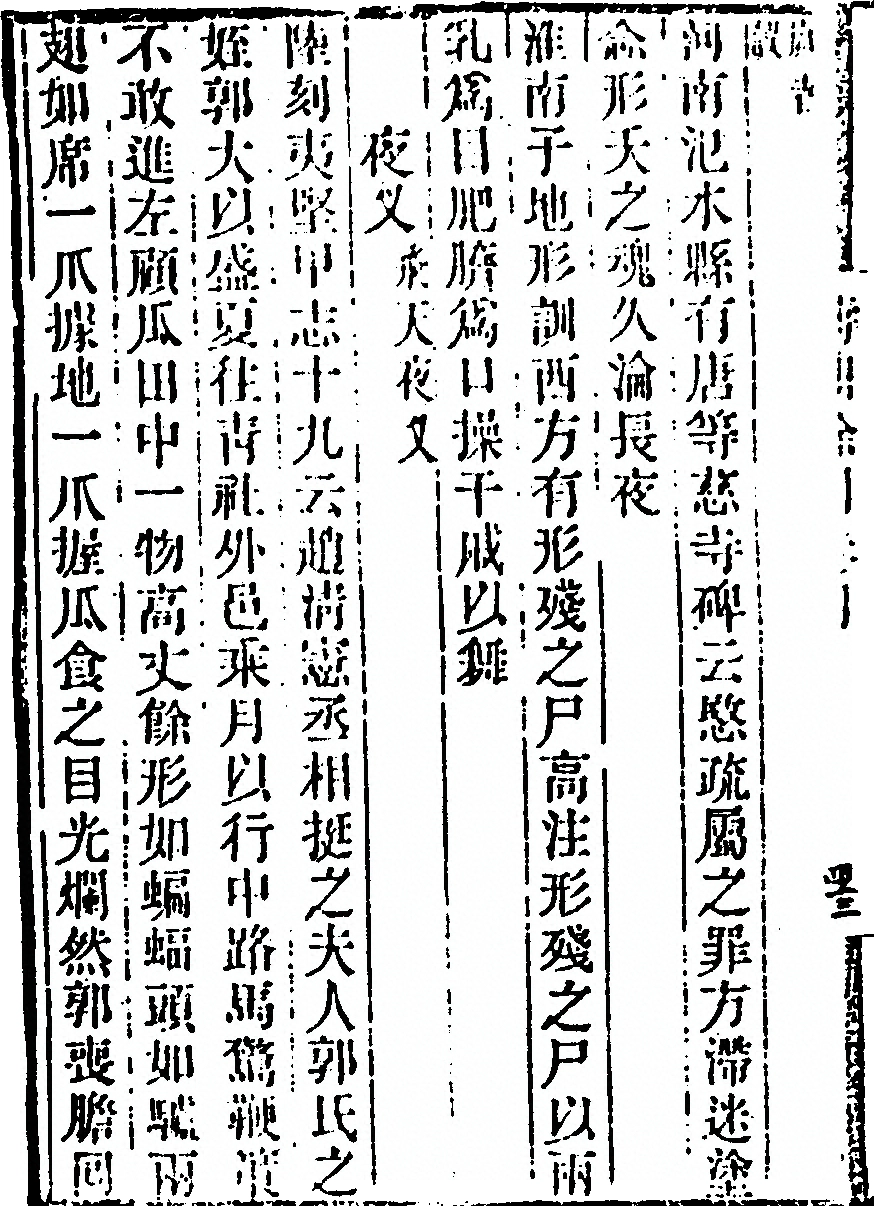 河南汜水縣有唐等慈寺碑云愍疏屬之罪方滯迷塗
念形天之魂久淪長夜
淮南子地形訓西方有形殘之尸高注形殘之尸以兩
乳爲目肥臍爲口操干戚以舞
夜叉 飛天夜叉
陸刻夷堅甲志十九云趙清憲丞相挺之夫人郭氏之
姪郭大以盛夏往青社外邑乘月以行中路馬驚鞭策
不敢進左顧瓜田中一物高丈餘形如蝙蝠頭如驢兩
翅如席一爪據地一爪握瓜食之目光爛然郭喪膽回